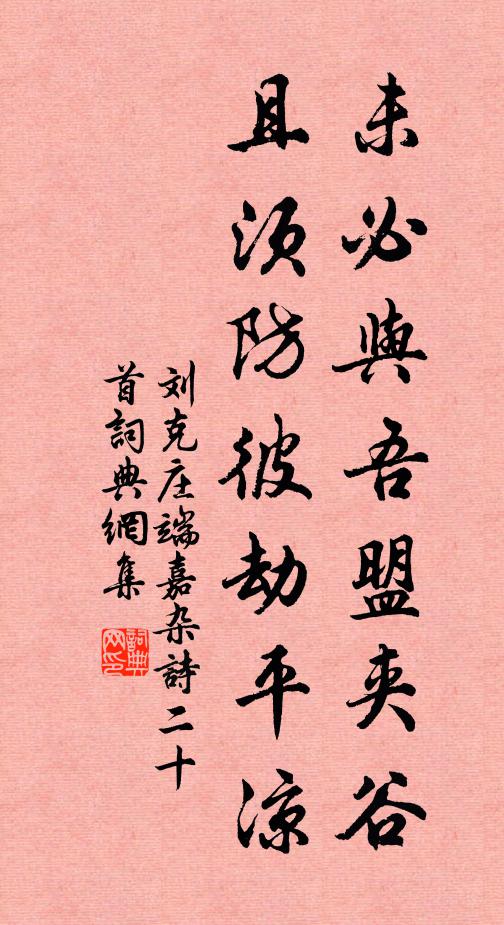 未必與吾盟夹谷
且须防彼劫平凉
刘克庄端嘉杂詩二十
首詞典網集
詞典网印